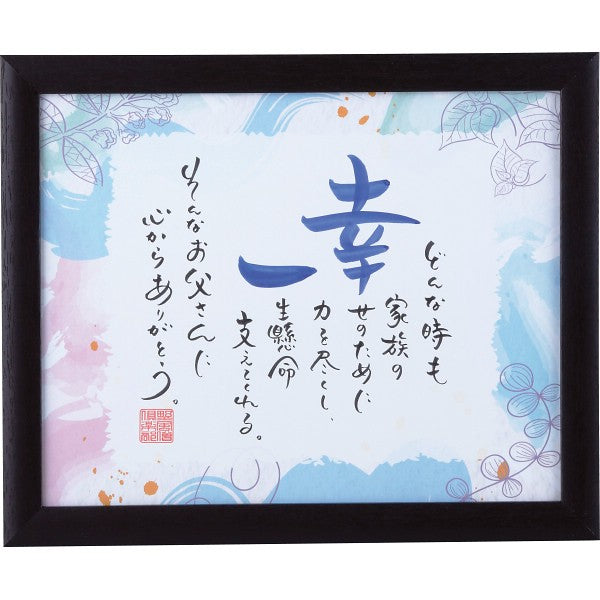 どんな時も
家族の
幸せのために
力を尽くし、
一生懸命
支えてくれる。
そんなお父さんに
心からありがとう。